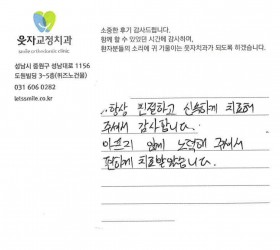 웃자교정치과
성남시 중원구 성남대로 1156
도원빌딩 3~5층(퀴즈노건물)
031 606 0282
letssmile.co.kr
소중한 후기 감사드립니다.
함께 할 수 있었던 시간에 감사하며,
환자분들의 소리에 귀 기울이는 웃자치과가 되도록 하겠습니다.
항상 친절하고 신속하게 치료해
주셔서 감사합니다.
아프지 않게 노력해 주셔서
편하게 치료받았습니다.